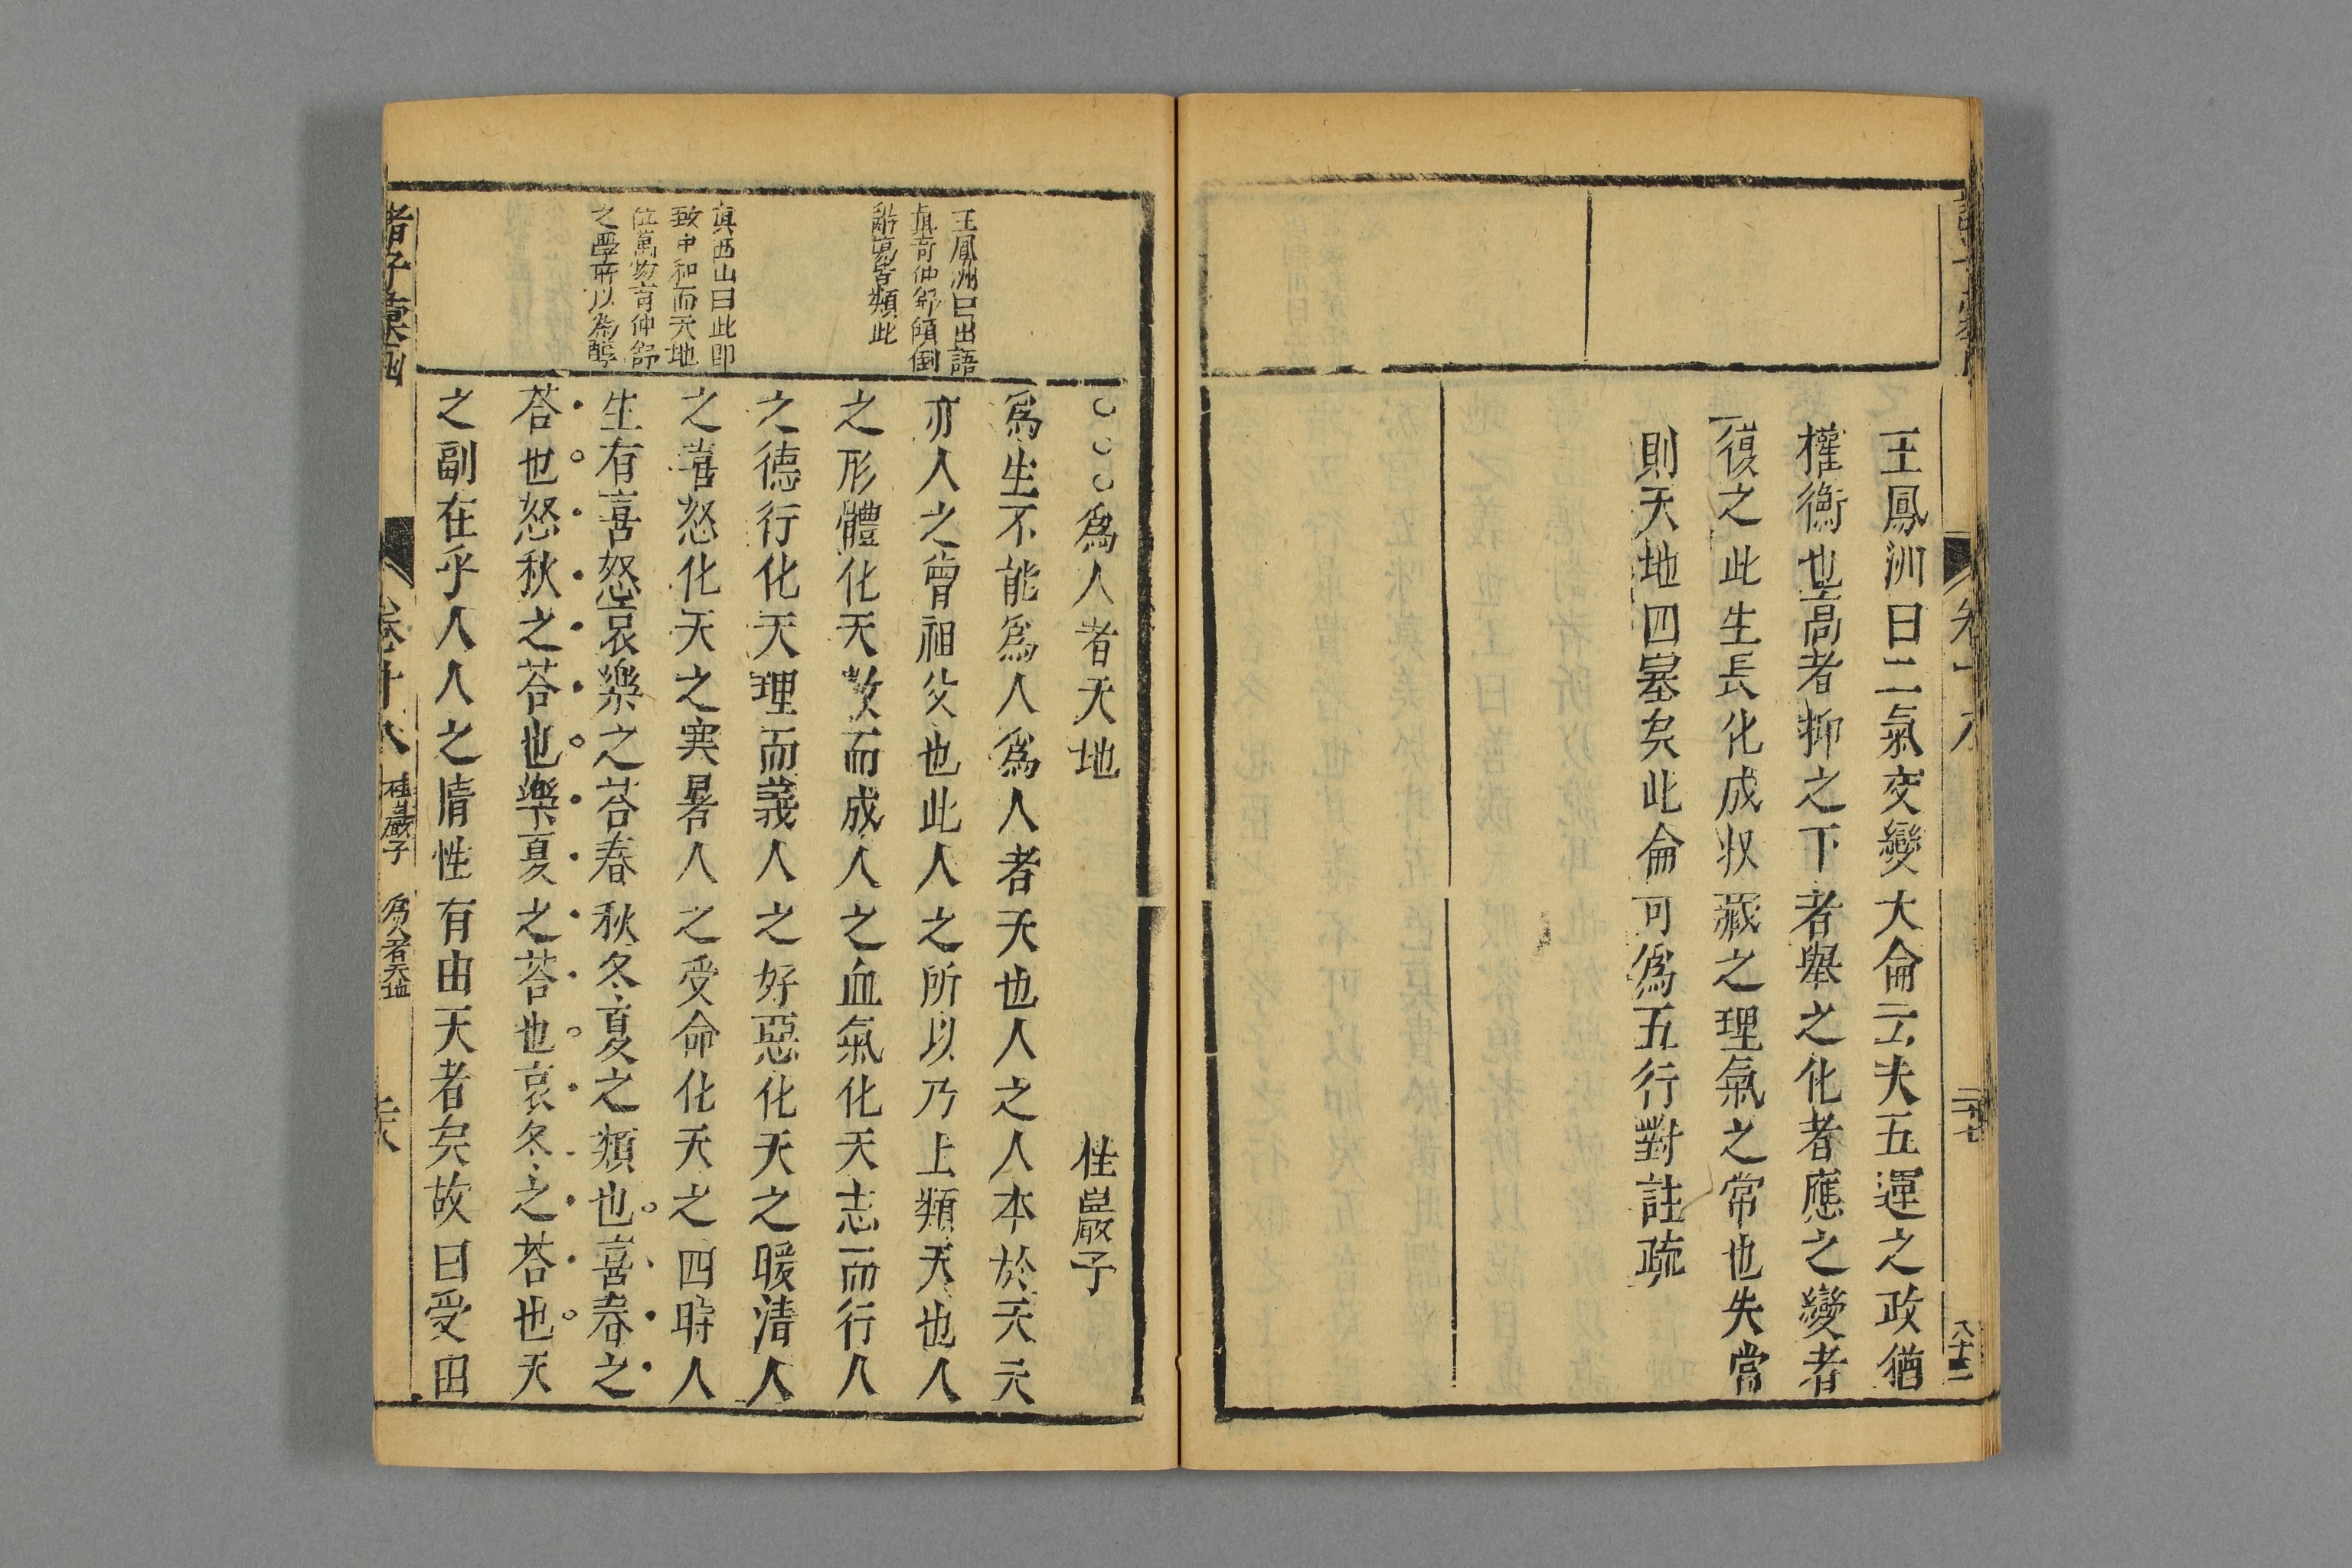 王鳳洲曰二氣交變大侖云夫五運之政猶
權衡也高者抑之下者舉之化者應之變者
復之此生長化成収藏之理氣之常也失常
則天地四塞矣此侖可爲五行對註疏
卷十八
二十七
○○○爲人者天地
桂巖子
王鳳洲曰出語
真奇仲舒傾倒
皆類此
真西山曰此即
致中和而天地
位萬物育仲舒
之學所以為醇
爲生不能爲人爲人者天也人之人本於天天
亦人之曾祖父也此人之所以乃上類天也人
之形體化天数而成人之血氣化天志而行人
之德行化天理而義人之好惡化天之暖清人
之喜怒化天之寒暑人之受命化天之四時人
生有喜怒哀樂之荅春秋冬夏之類也喜春之
荅也怒秋之荅也樂夏之荅也哀冬之荅也天
之副在乎人人之情性有由天者矣故曰受由
諸子彙函
卷十八
桂巖子
爲人者天地